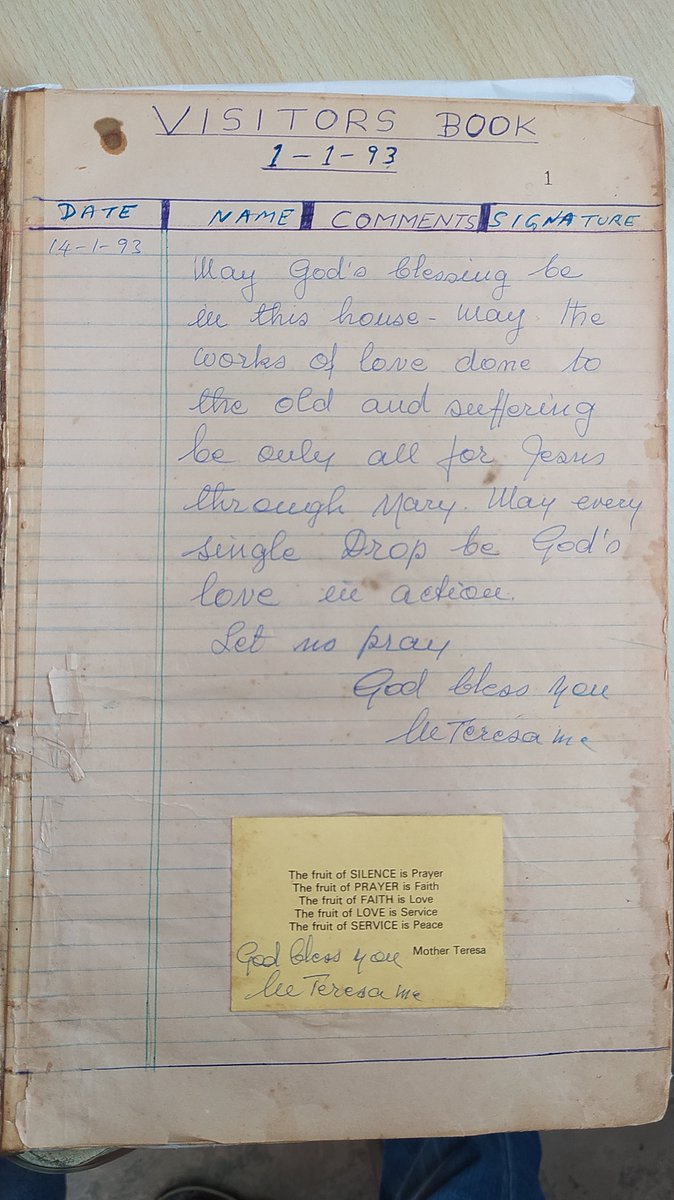 VISITORS BOOK
1-1-93
1
DATE NAME COMMENTS SIGNATURE
14-1-93
May God's blessing be
in this house - May the
works of love done to
the old and suffering
be only all for Jesus
through Mary. May every
single Drop be God's
love in action.
Let us pray
God bless you
M Teresa mc
The fruit of SILENCE is Prayer
The fruit of PRAYER is Faith
The fruit of FAITH is Love
The fruit of LOVE is Service
The fruit of SERVICE is Peace
Mother Teresa
God bless you
M Teresa mc